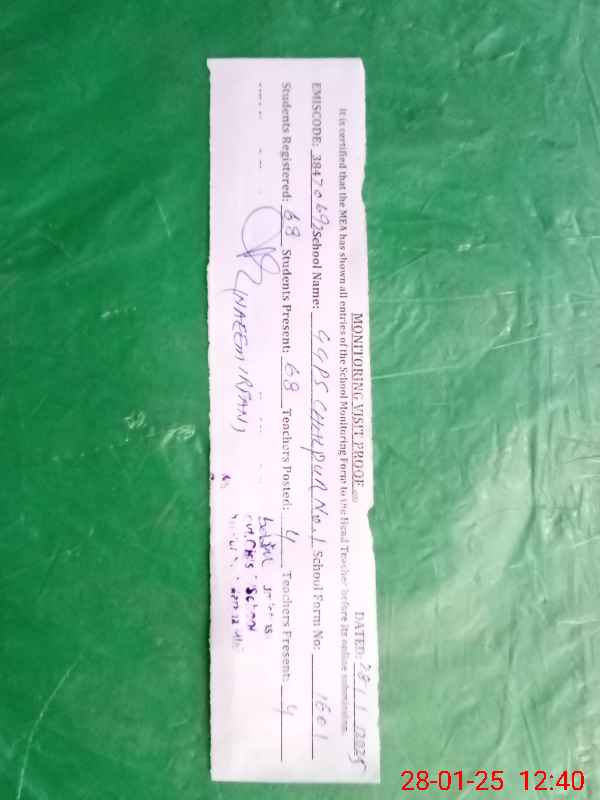 MONITORING VISIT PROOF
DATED: 28/1/2025
It is certified that the MEA has shown all entries of the School Monitoring Form to the Head Teacher before its online submission.
EMISCODE: 38470692 School Name: GGPS CHAKPUR No.1 School Form No: 1601
Students Registered: 68 Students Present: 68 Teachers Posted: 4 Teachers Present: 4
(NAEEM IRFAN)
28-01-25 12:40